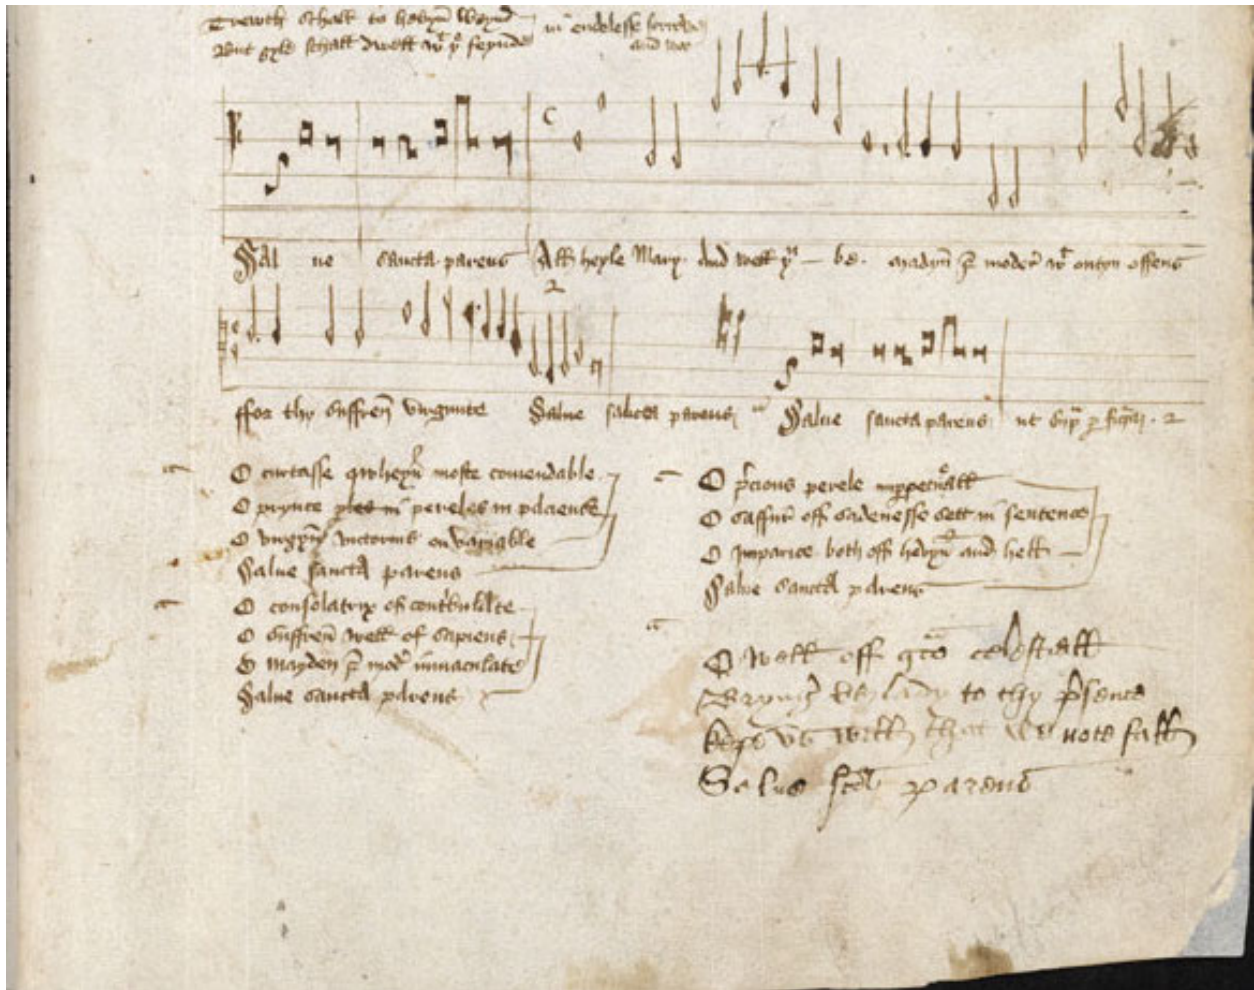 Trewth schall to hevyn wend in endelesse
But gyle schall dwell wt ye feynde and woo
Sal ve sancta parens All heyle Mary And well yu be. maydyn & moder wt owtyn offens
ffor thy suffren virginite Salve sancta parens Salve sancta parens ut
O curtasse qwheyn moste comendable
O prynce pereles in paciens
O virgyn victorius on variable
Salve sancta parens
O consolatrix of contribulate
O suffren well of sapiens
O mayden & modr immaculate
Salve sancta parens
O pcious perele imppetuall
O saffur off sadenesse sett in sentence
O imparice both off hevyn and hell
Salve sancta parens
O Well off gce celestiall
Bryng us lady to thy psence
kepe us well that we note fall
Salve sca parens